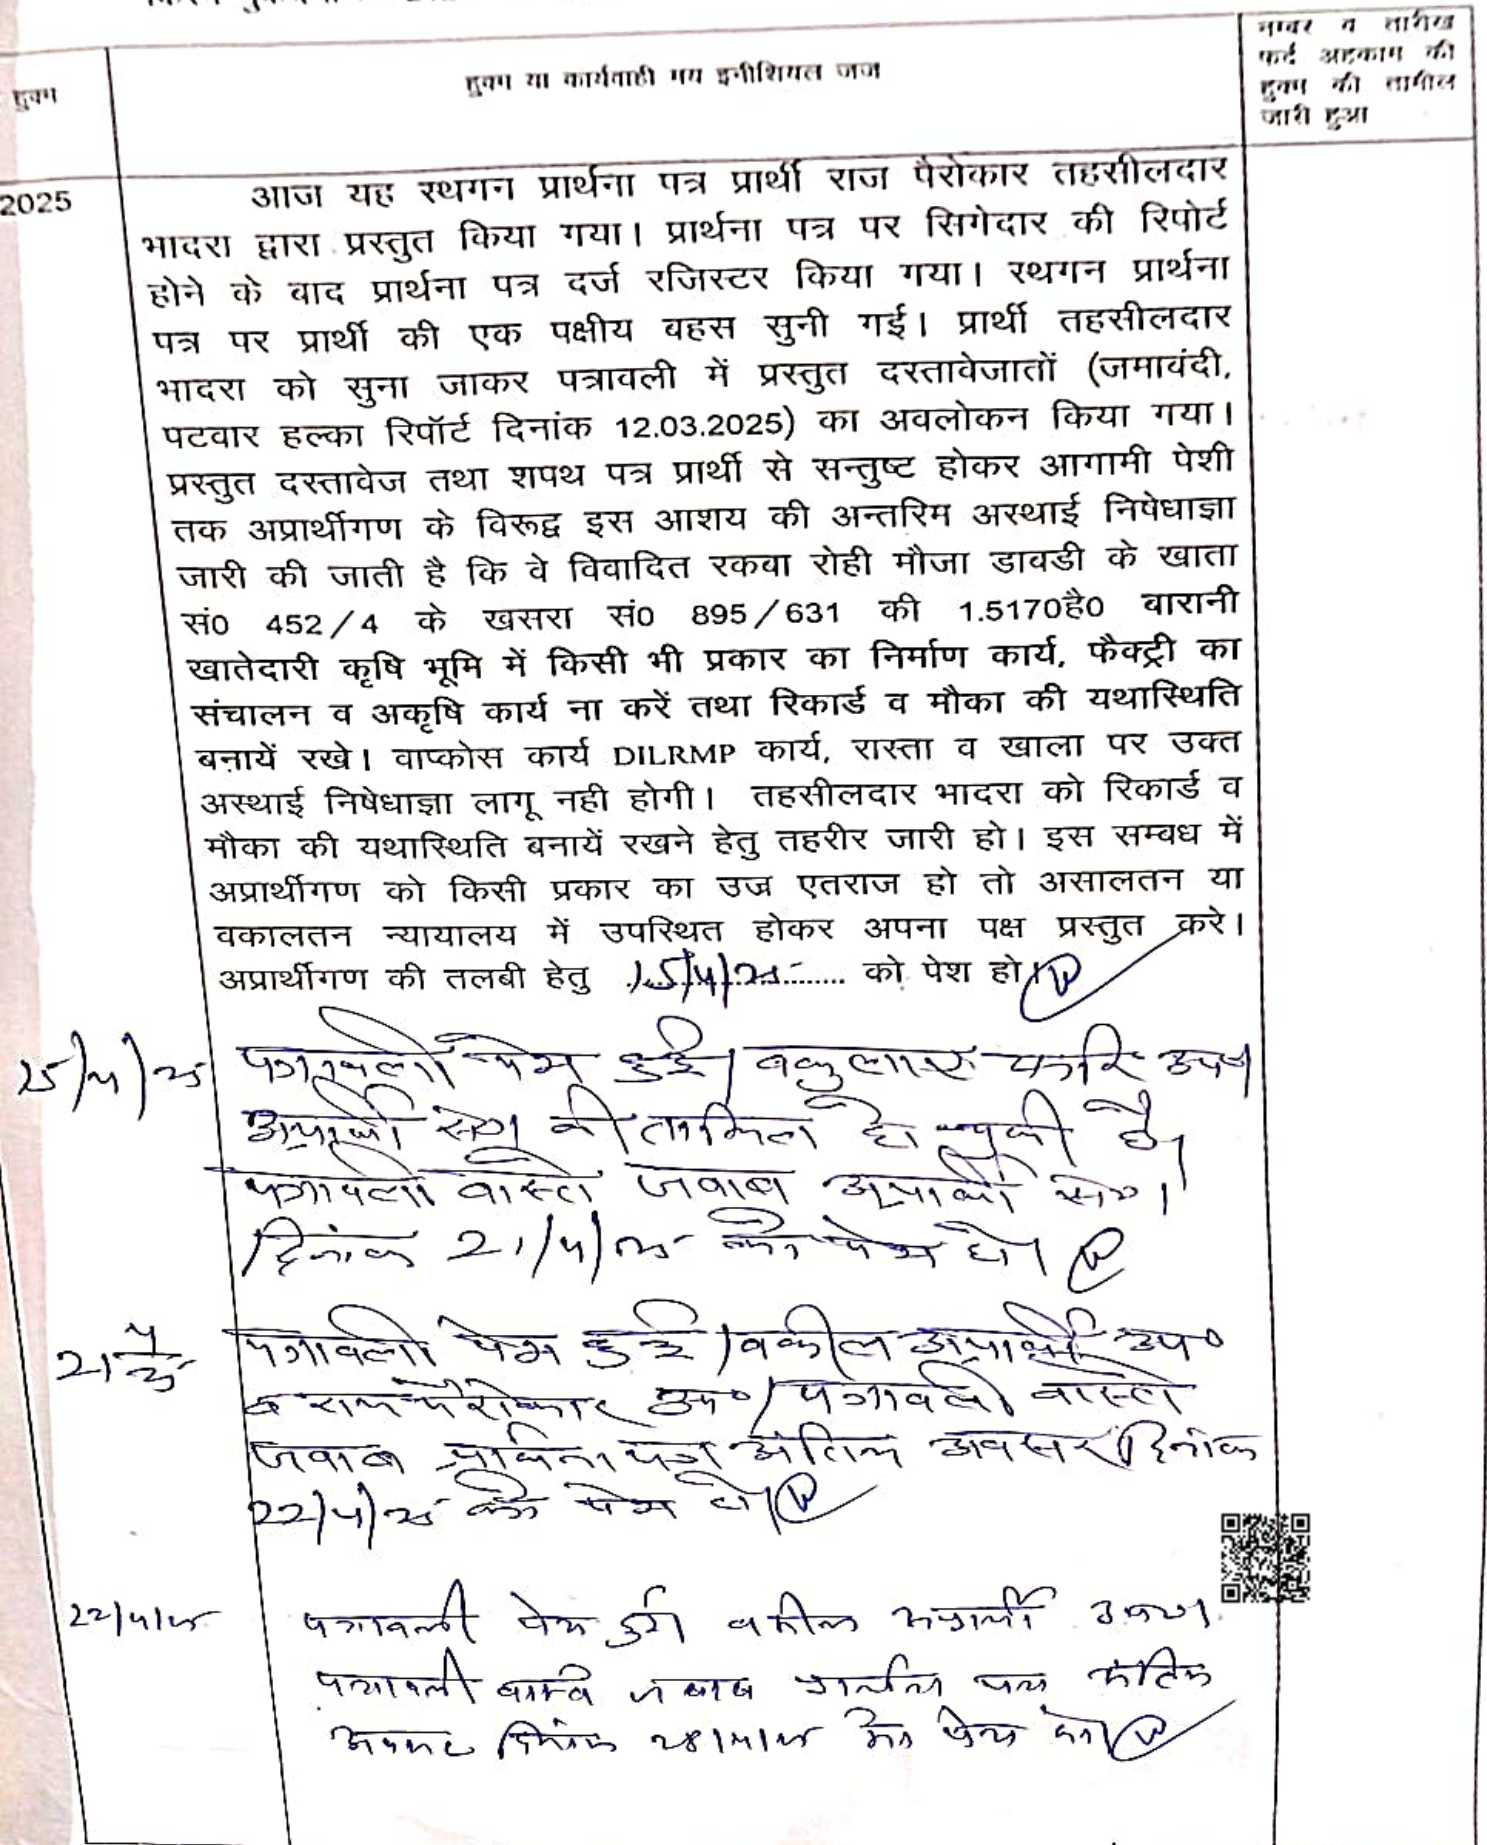 हुक्म
हुक्म या कार्यवाही मय इनीशियल जज
नम्बर व तारीख
फर्द अहकाम की
हुक्म की तामील
जारी हुआ
2025
आज यह स्थगन प्रार्थना पत्र प्रार्थी राज पैरोकार तहसीलदार
भादरा द्वारा प्रस्तुत किया गया। प्रार्थना पत्र पर सिगेदार की रिपोर्ट
होने के बाद प्रार्थना पत्र दर्ज रजिस्टर किया गया। स्थगन प्रार्थना
पत्र पर प्रार्थी की एक पक्षीय बहस सुनी गई। प्रार्थी तहसीलदार
भादरा को सुना जाकर पत्रावली में प्रस्तुत दस्तावेजातों (जमाबंदी,
पटवार हल्का रिपॉर्ट दिनांक 12.03.2025) का अवलोकन किया गया।
प्रस्तुत दस्तावेज तथा शपथ पत्र प्रार्थी से सन्तुष्ट होकर आगामी पेशी
तक अप्रार्थीगण के विरूद्व इस आशय की अन्तरिम अस्थाई निषेधाज्ञा
जारी की जाती है कि वे विवादित रकबा रोही मौजा डाबडी के खाता
सं0 452/4 के खसरा सं0 895/631 की 1.5170है0 बारानी
खातेदारी कृषि भूमि में किसी भी प्रकार का निर्माण कार्य, फैक्ट्री का
संचालन व अकृषि कार्य ना करें तथा रिकार्ड व मौका की यथास्थिति
बनायें रखे। वाप्कोस कार्य DILRMP कार्य, रास्ता व खाला पर उक्त
अस्थाई निषेधाज्ञा लागू नही होगी। तहसीलदार भादरा को रिकार्ड व
मौका की यथास्थिति बनायें रखने हेतु तहरीर जारी हो। इस सम्बध में
अप्रार्थीगण को किसी प्रकार का उज एतराज हो तो असालतन या
वकालतन न्यायालय में उपस्थित होकर अपना पक्ष प्रस्तुत करे।
अप्रार्थीगण की तलबी हेतु 15/4/25 को पेश हो।
15/4/25 पत्रावली पेश हुई।
अप्रार्थी की तामिल हो चुकी है।
पत्रावली वास्ते जवाब अप्रार्थी
दिनांक 21/4/25 को पेश हो।
21/4/25 पत्रावली पेश हुई। वकील अप्रार्थी उप०
व राज पैरोकार उप०। पत्रावली वास्ते
जवाब प्रार्थना पत्र अंतिम अवसर दिनांक
22/4/25 को पेश हो।
22/4/25 पत्रावली पेश हुई। वकील अप्रार्थी
पत्रावली वास्ते जवाब प्रार्थना पत्र अंतिम
अवसर दिनांक 28/4/25 को पेश हो।